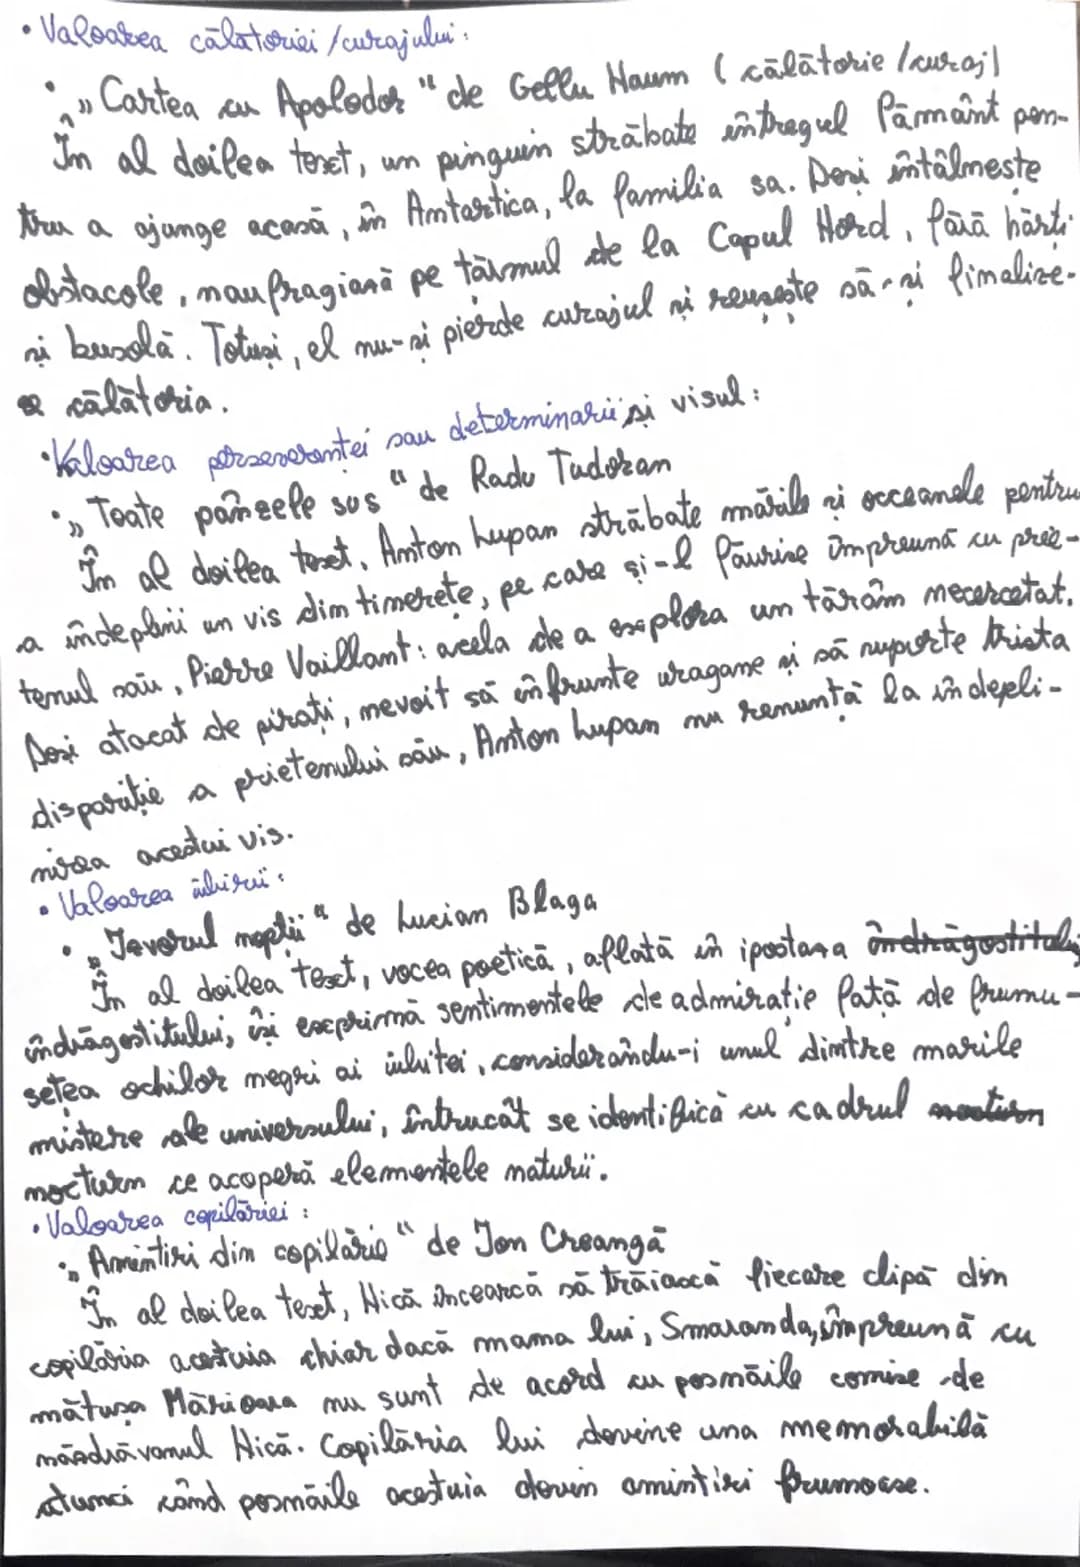 • Valoarea călătoriei /curajului:
• „Cartea cu Apolodor" de Gellu Naum (călătorie /curaj)
În al doilea text, un pinguin străbate întregul Pământ pen-
tru a ajunge acasă, în Antartica, la familia sa. Deși întâlmește
obstacole, naufragiază pe tărmul de la Capul Hord, fără hărți
și busolă. Totuși, el nu-și pierde curajul și reușește să-și finalize-
ze călătoria.
• Valoarea perseverenței sau determinării și visul:
• „Toate pânzele sus" de Radu Tudoran
În al doilea text, Anton Lupan străbate mările și occeanele pentru
a îndeplini un vis din tinerețe, pe care și-l făurise împreună cu prie-
tenul său, Pierre Vaillant: acela de a explora un tărâm necercetat.
Deși atacat de pirați, nevoit să înfrunte uragane și să suporte trista
dispariție a prietenului său, Anton Lupan nu renunță la îndepli-
nirea acestui vis.
• Valoarea iubirii:
• „Izvorul nopții" de Lucian Blaga
În al doilea text, vocea poetică, aflată în ipostaza îndrăgostitului,
îndrăgostitului, își exprimă sentimentele de admirație față de frumu-
setea ochilor negri ai iubitei, considerându-i unul dintre marile
mistere ale universului, întrucât se identifică cu cadrul
nocturn ce acoperă elementele naturii.
• Valoarea copilăriei:
• „Amintiri din copilărie" de Ion Creangă
În al doilea text, Nică încearcă să trăiască fiecare clipă din
copilăria acestuia chiar dacă mama lui, Smaranda, împreună cu
mătușa Mărioara nu sunt de acord cu posmăile comise de
măzdrăvanul Nică. Copilăria lui devine una memorabilă
atunci când posmăile acestuia devin amintiri frumoase.